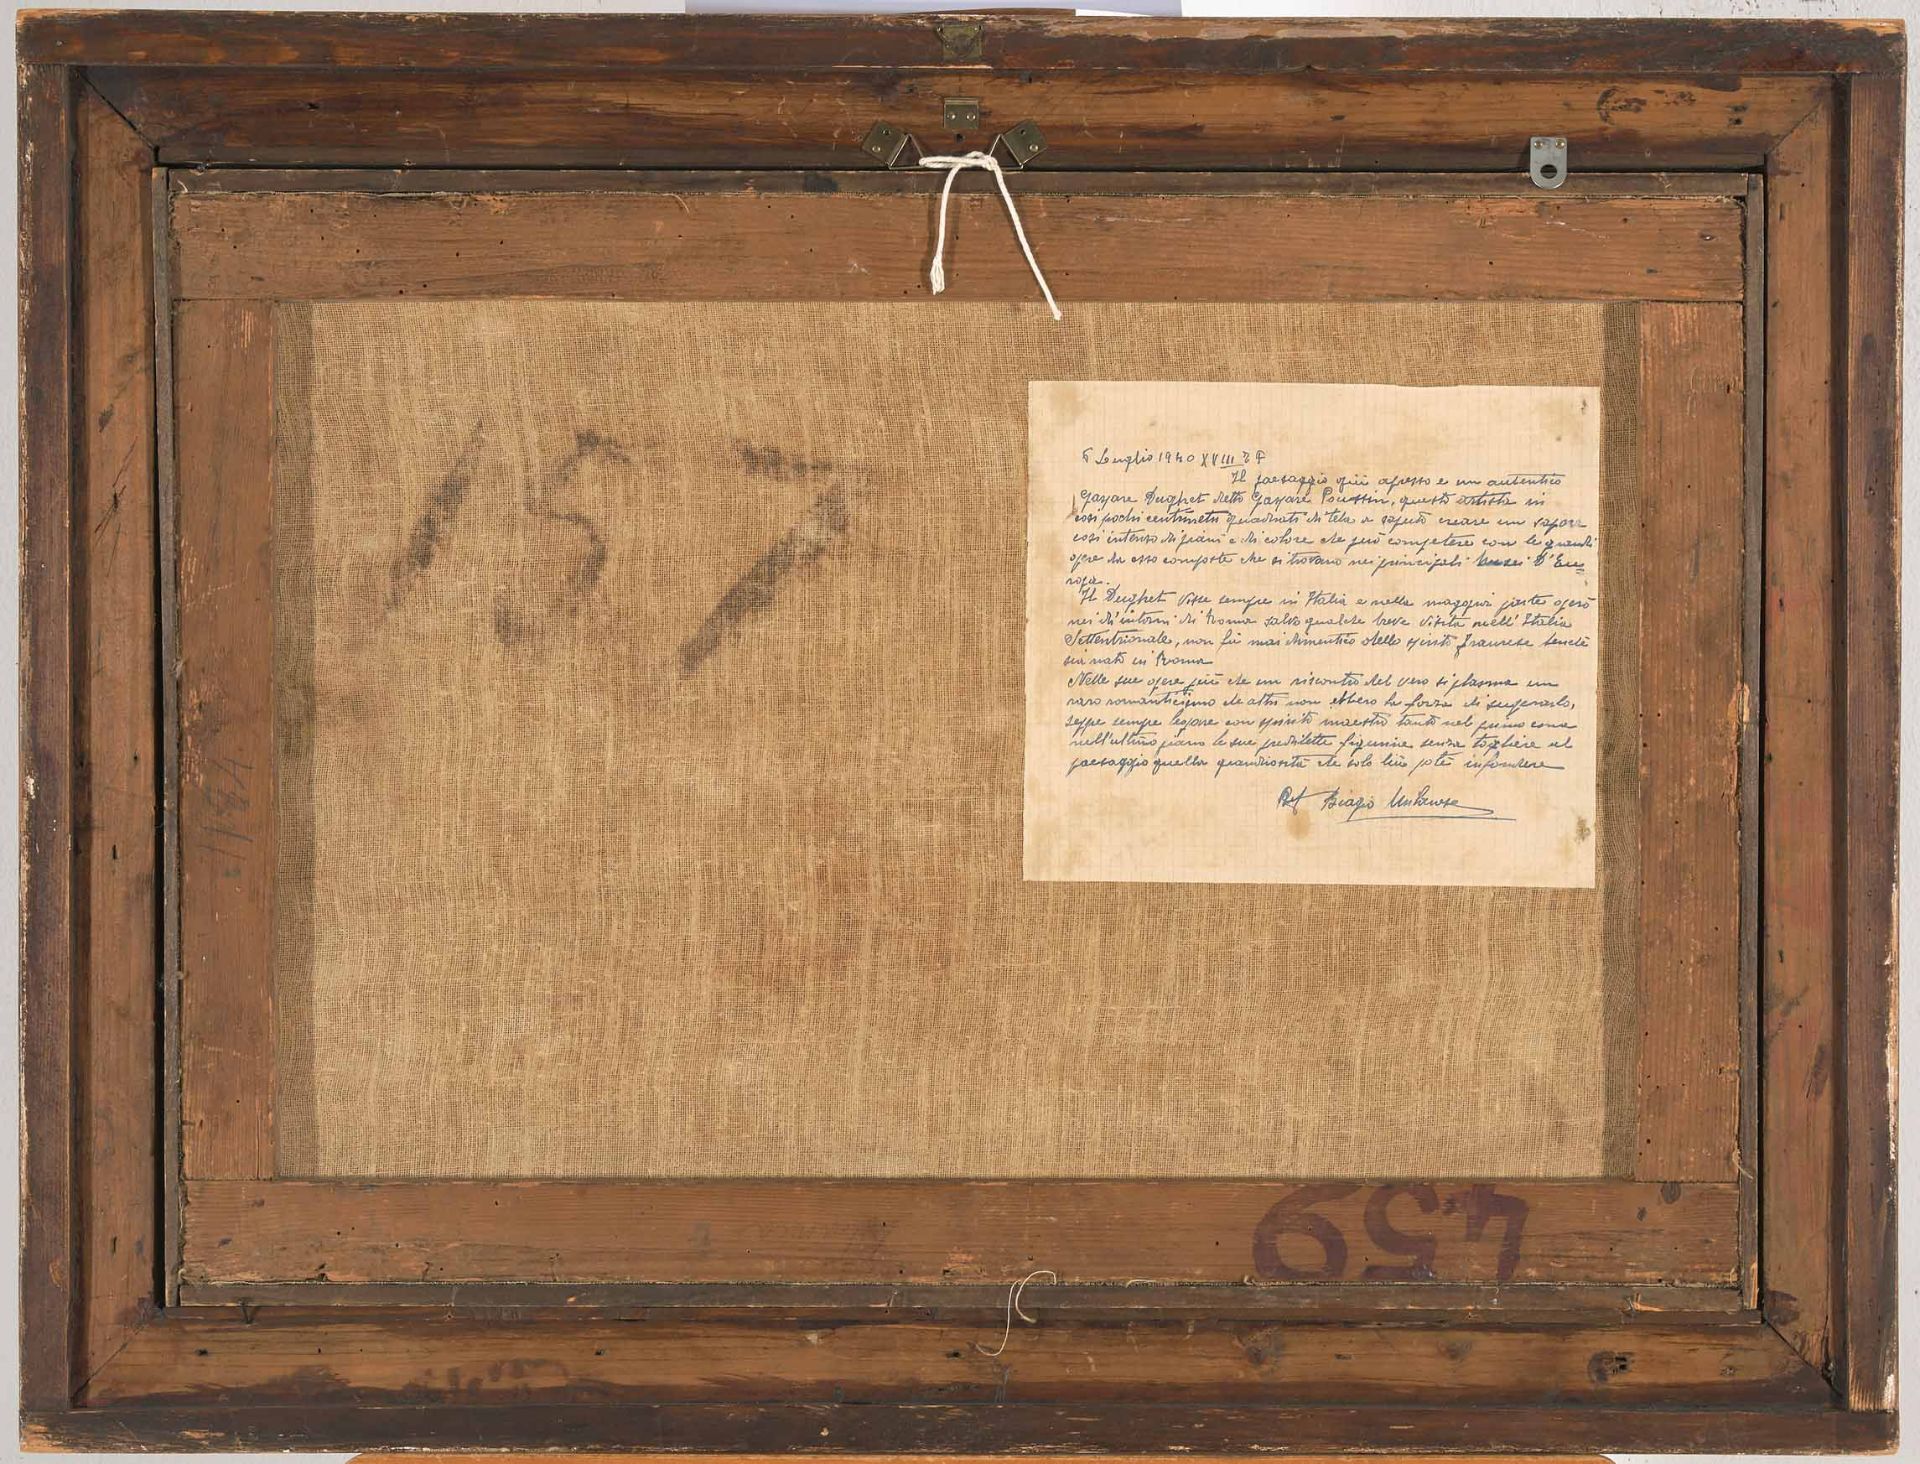 157
6 Luglio 1940 XVIII E F
Il paesaggio qui apresso e un autentico
Gaspare Dughet detto Gaspare Poussin, questo artista in
cosi pochi centimetri quadrati di tela a saputo creare un sapore
cosi intenso di piani e di colore che può competere con le grandi
opere da esso composte che si trovano nei principali Musei D'Eu=
ropa.
Il Dughet visse sempre in Italia e nella maggior parte operò
nei di'intorni di Roma salvo qualche breve visita nell'Italia
Settentrionale, non fu mai dimentico dello spirito francese benchè
sia nato in Roma
Nelle sue opere più che un riscontro del vero si plasma un
raro romanticismo che altri non ebbero la forza di superarlo,
seppe sempre legare con spirito maestro tanto nel primo come
nell'ultimo piano le sue predilette figurine senza togliere al
paesaggio quella grandiosità che solo lui potè infondere
Prof Biagio
1184
459